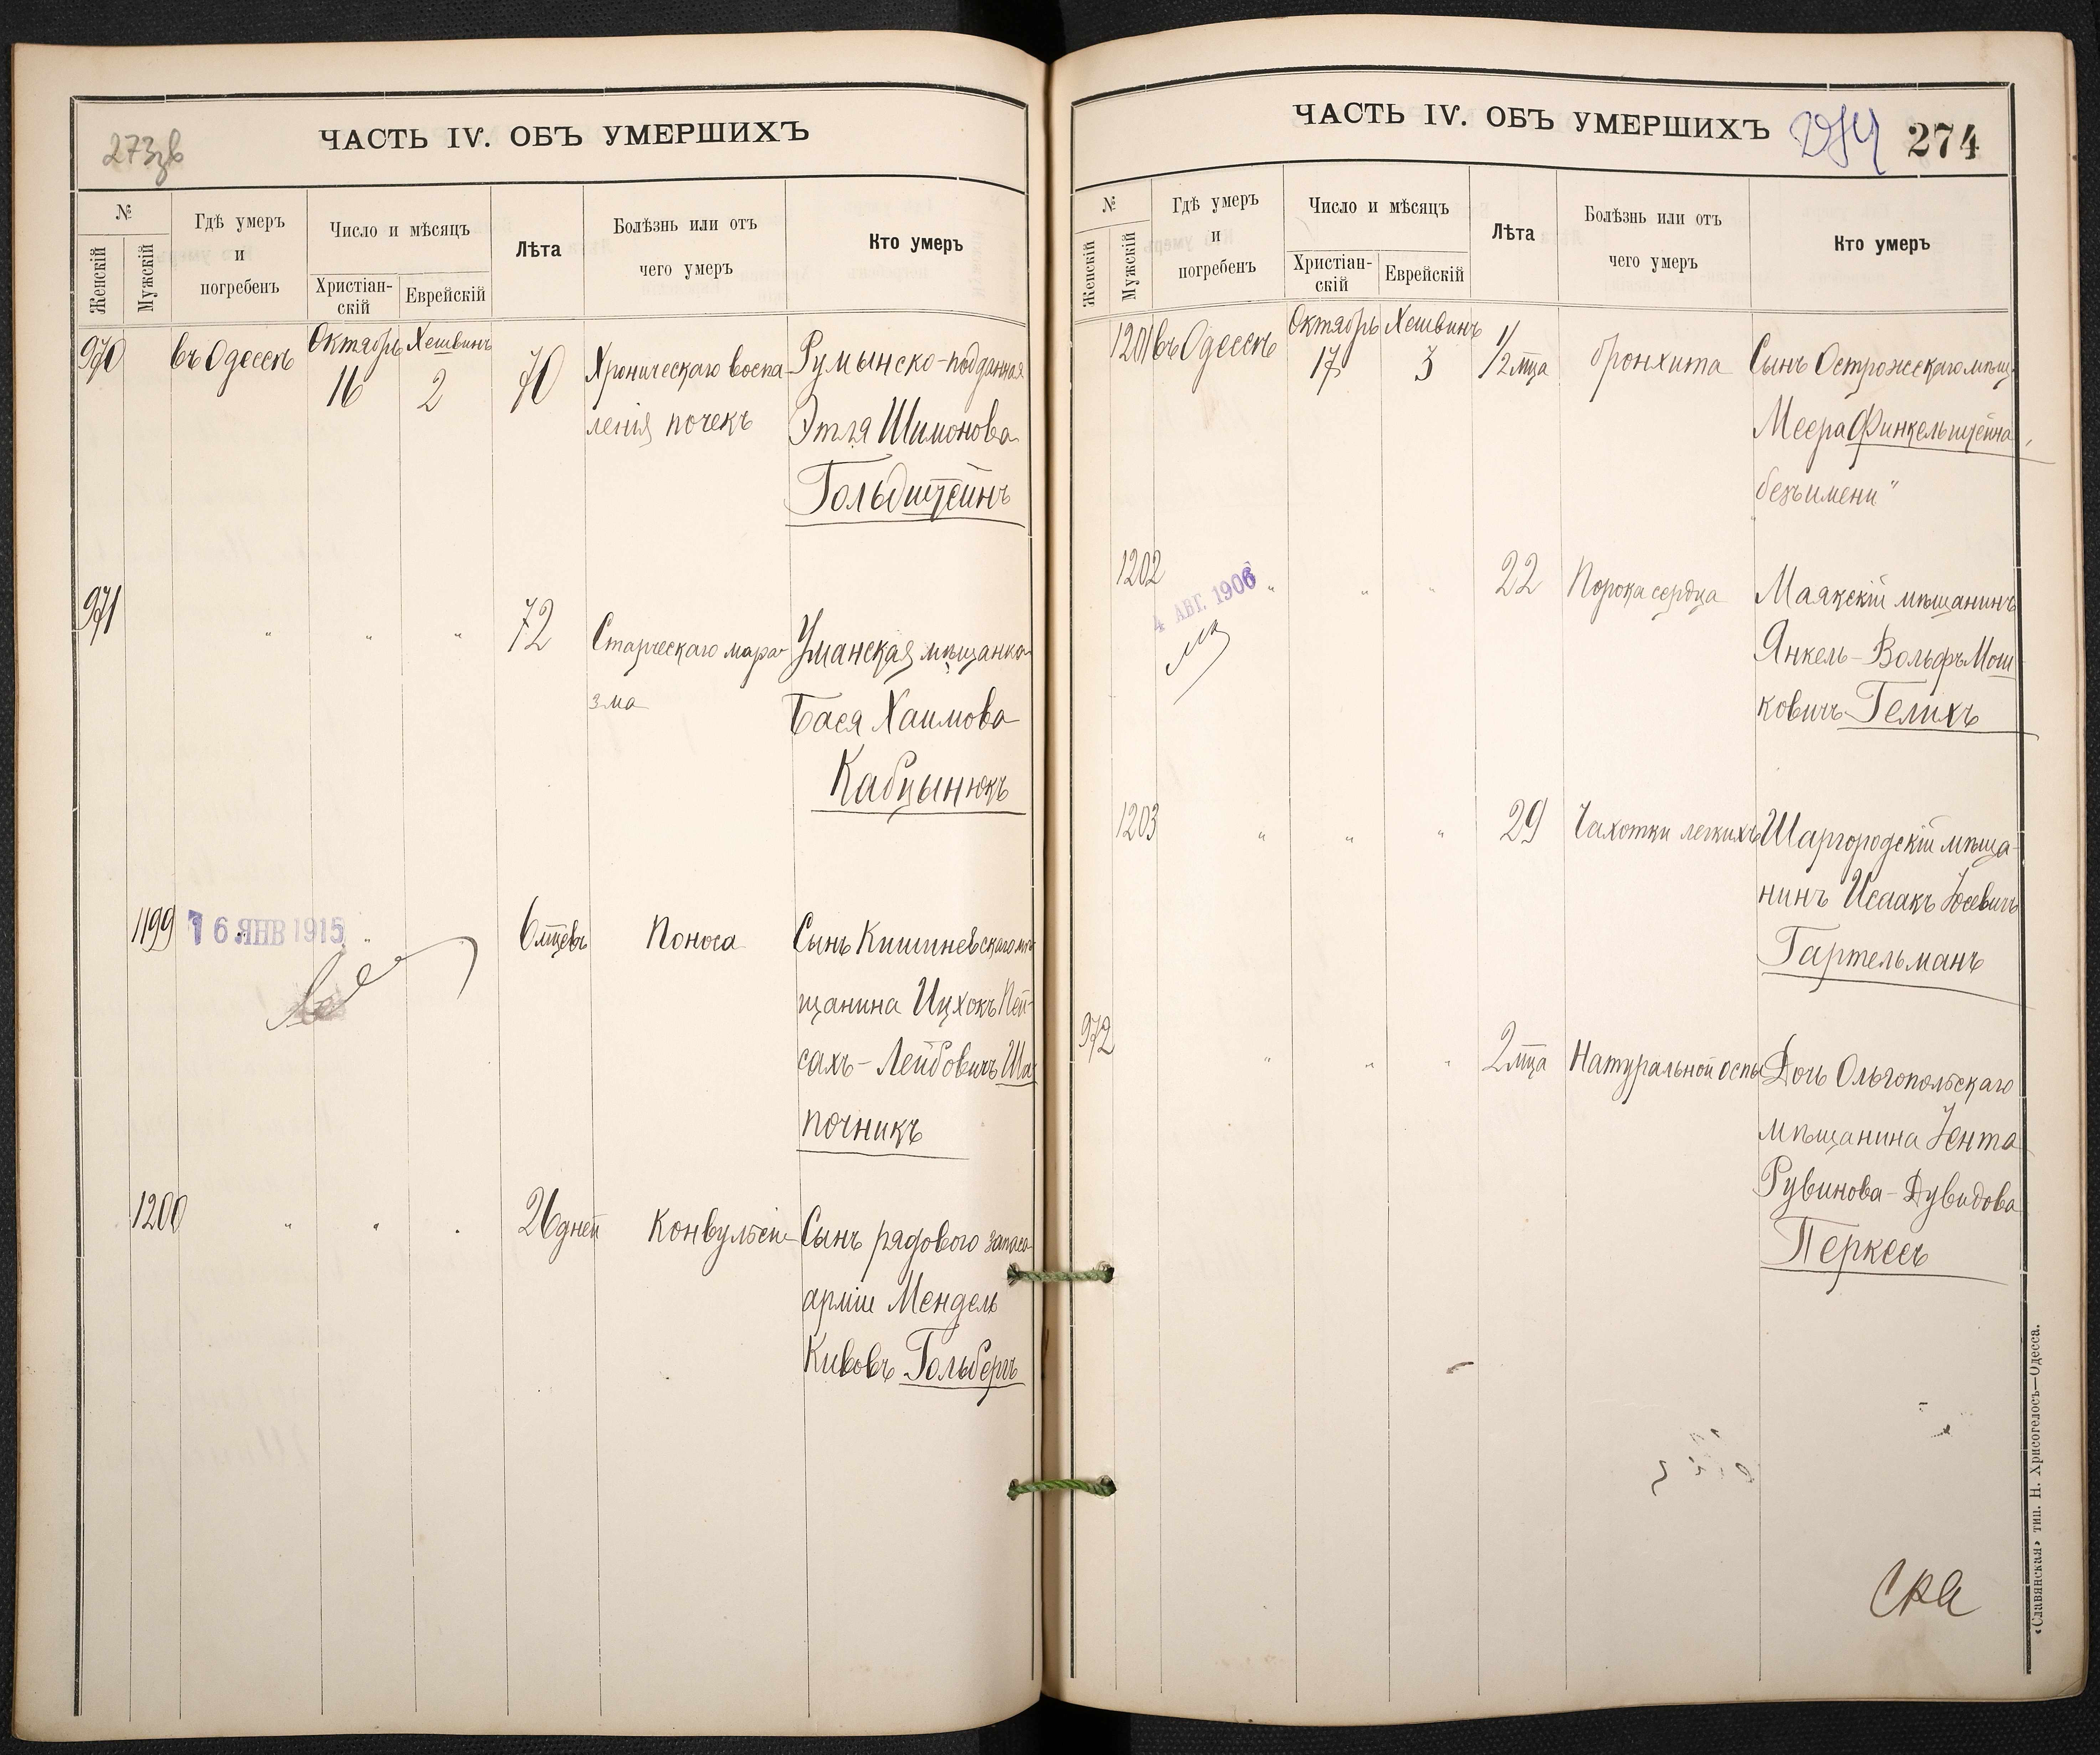 273зв
ЧАСТЬ IV. ОБЪ УМЕРШИХЪ
№
Женскій
Мужскій
Гдѣ умеръ
и
погребенъ
Число и мѣсяцъ
Христіан-
скій
Еврейскій
Лѣта
Болѣзнь или отъ
чего умеръ
Кто умеръ
970 въ Одессѣ Октябрь 16 Хешвинъ 2 70 Хроническаго воспа- Румынско-подданная
ленія почекъ Этля Шимонова
Гольдштейнъ
971 " " " 72 Старческаго мара- Уманская мѣщанка
зма Бася Хаимова
Кабцынюкъ
1199 16 ЯНВ 1915 " 6 мцевъ Поноса Сынъ Кишиневскаго мѣ-
щанина Ицхокъ Пей-
сахъ-Лейбовичъ Ша-
почникъ
1200 " " " 26 дней Конвульсіи Сынъ рядового запаса
арміи Мендель
Кивовъ Гольбергъ
ЧАСТЬ IV. ОБЪ УМЕРШИХЪ 274 274
№
Женскій
Мужскій
Гдѣ умеръ
и
погребенъ
Число и мѣсяцъ
Христіан-
скій
Еврейскій
Лѣта
Болѣзнь или отъ
чего умеръ
Кто умеръ
1201 въ Одессѣ Октябрь 17 Хешвинъ 3 1/2 мца бронхита Сынъ Острожскаго мѣщ.
Меера Финкельштейна,
безъ имени"
1202 4 АВГ. 1906 " " " 22 Порока сердца Маякскій мѣщанинъ
Янкель-Вольфъ Мош-
ковичъ Гелихъ
1203 " " " 29 Чахотки легкихъ Шаргородскій мѣща-
нинъ Исаакъ Іосевичъ
Гартельманъ
972 " " " 2 мца Натуральной оспы Дочь Ольгопольскаго
мѣщанина Іента
Рувинова-Дувидова
Перкесъ
«Славянская» тип. Н. Хрисогелосъ—Одесса.